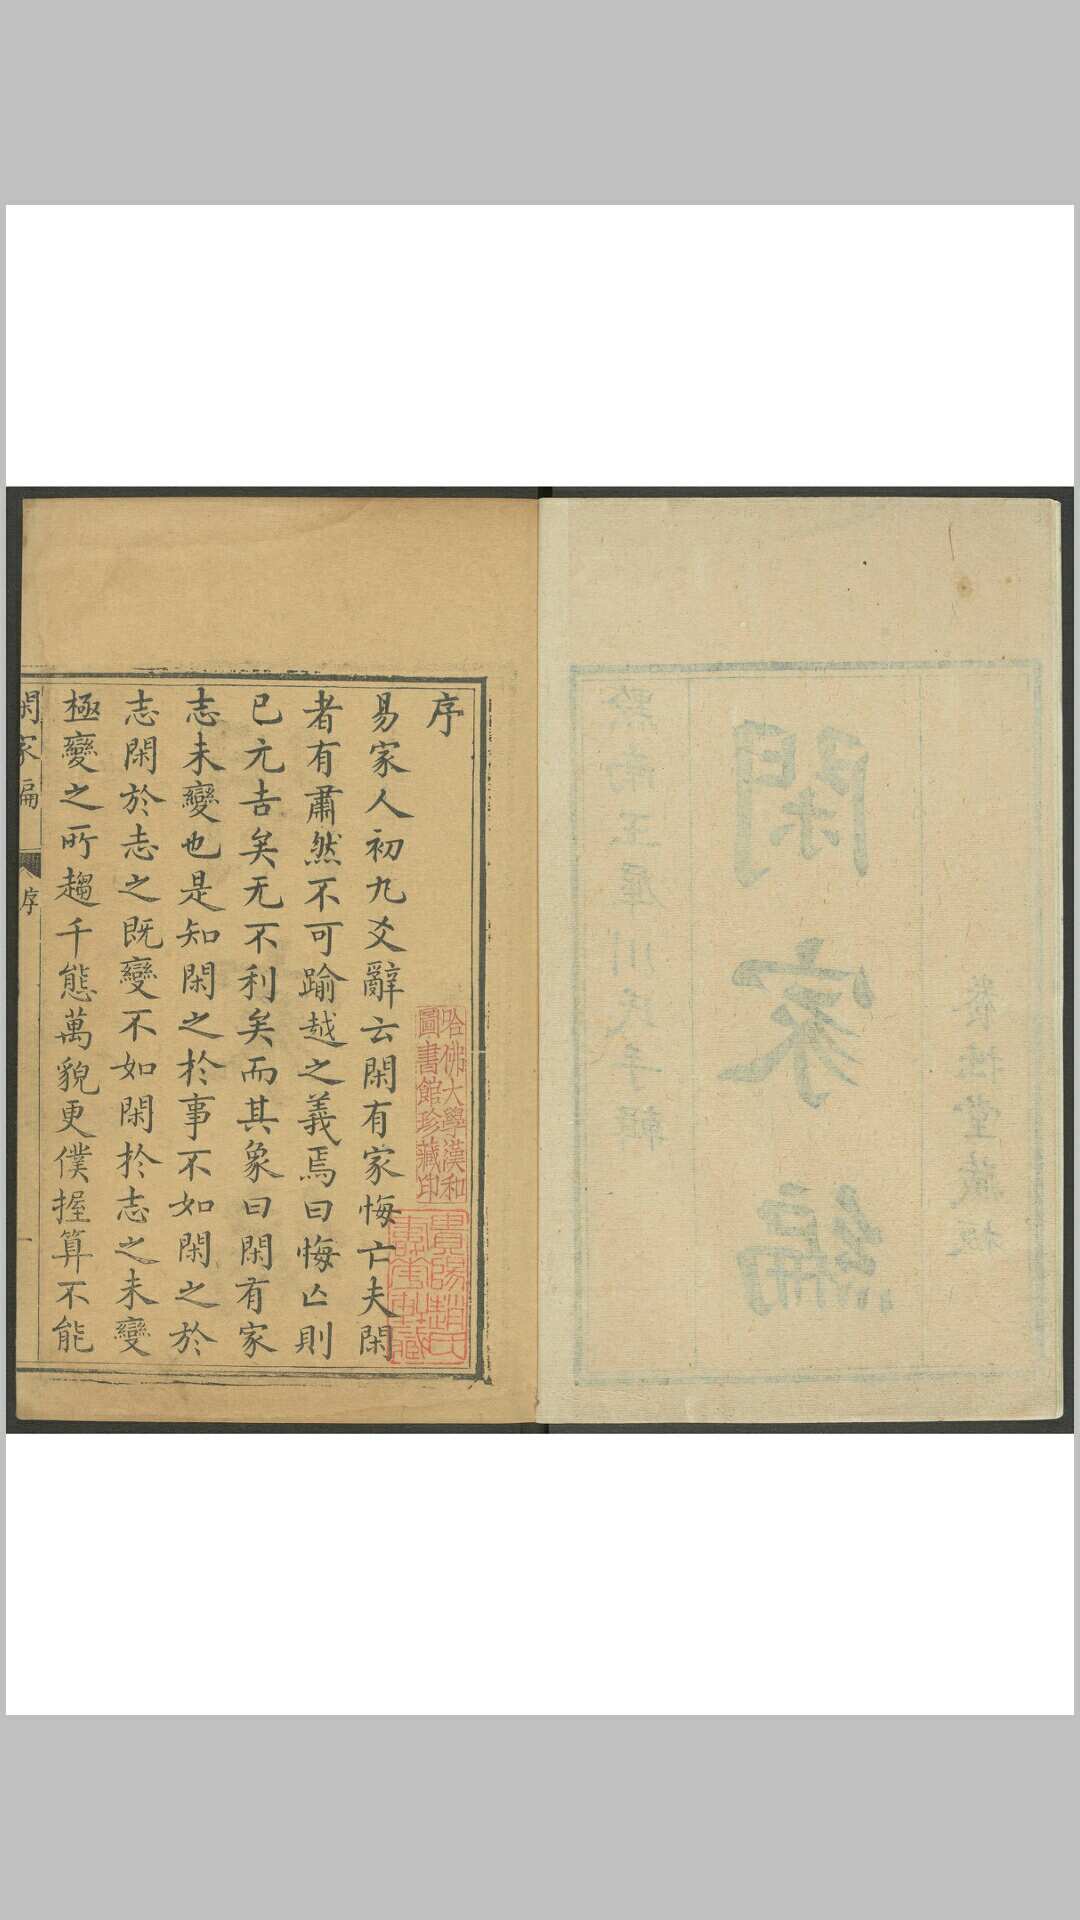 養性堂藏板
閑家編
黔南王屋川氏手輯
序
易家人初九爻辭云閑有家悔亡夫閑
者有肅然不可踰越之義焉曰悔亡則
已元吉矣无不利矣而其象曰閑有家
志未變也是知閑之於事不如閑之於
志閑於志之既變不如閑於志之未變
極變之所趨千態萬貌更僕握算不能
閑家編
序
一
哈佛大學漢和
圖書館珍藏印
貴陽趙氏